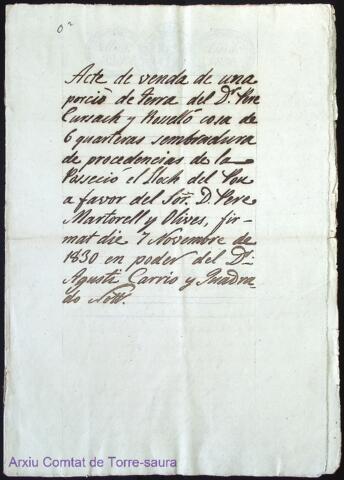 Acte de venda de una
porció de terra del Dr. Pere
Cursach y Revelló cosa de
6 quarteras sembradura
de procedencias de la
Posseció el Lloch del Pou
a favor del Sor. D. Pere
Martorell y Olives, fir-
mat die 7 Novembre de
1830 en poder del Dr.
Agustí Carrio y Quadra-
do Nott.
Arxiu Comtat de Torre-saura